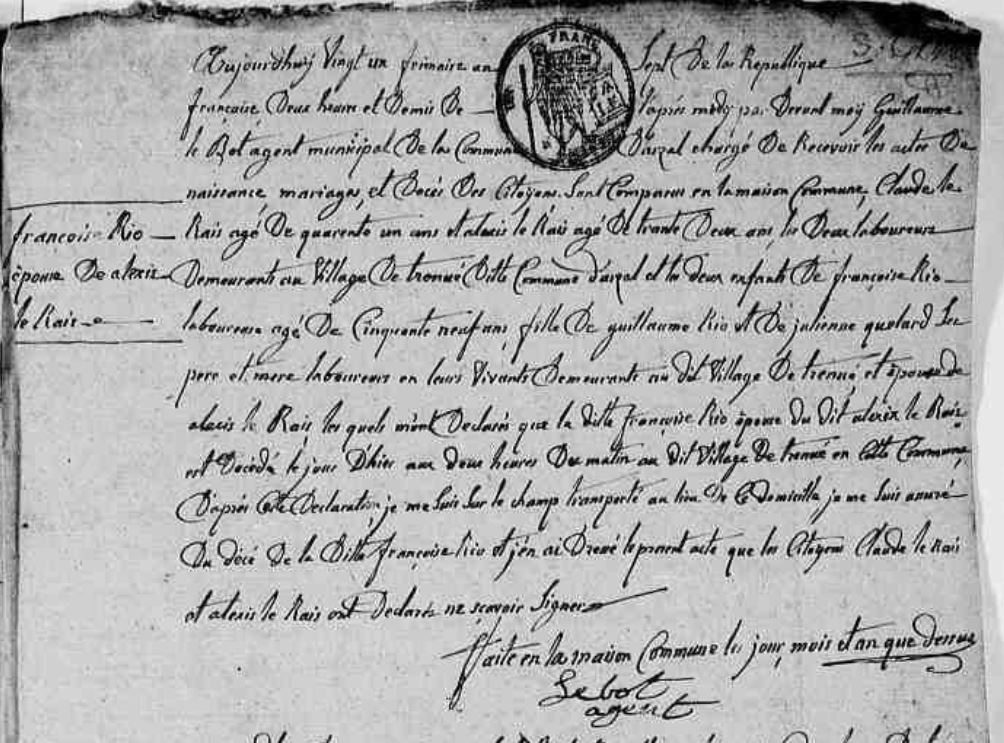 Aujourd'huy Vingt un frimaire an Sept De la Republique
francaise, Deux heure et Demie De l'apres midy par Devant moy Guillaume
le Bot agent municipal De la Commune D'arzal chargé De Recevoir les actes De
naissance, mariages, et Décés Des Citoyens Sont Comparus en la maison Commune, Claude le
Rais agé De quarente un ans et alexis le Rais agé De trante Deux ans les Deux laboureurs
Demeurants au Village De trenué Ditte Commune d'arzal et les deux enfants De françoise Rio
laboureuse agé De Cinquante neuf ans, fille De guillaume Rio et De julienne quelard Ses
pere et mere laboureurs en leurs Vivants Demeurants au dit Village De trenué et épouse de
alexis le Rais les quels m'ont Declarés que la ditte françoise Rio épouse du Dit alexix le Rais
est Décédé le jour D'hier aux deux heures Du matin au dit Village De trenué en Cette Commune
D'apres Cette Declaration, je me Suis Sur le champ transporté au lieu De Ce domicille je me Suis assuré
Du décé De la Ditte françoise Rio et j'en ai Dressé le present acte que les Citoyens Claude le Rais
et alexis le Rais ont Declarés ne sçavoir Signer
faite en la maison Commune les jour, mois et an que dessus
Lebot
agent
françoise Rio
épouse De alexis
le Rais
FRANC